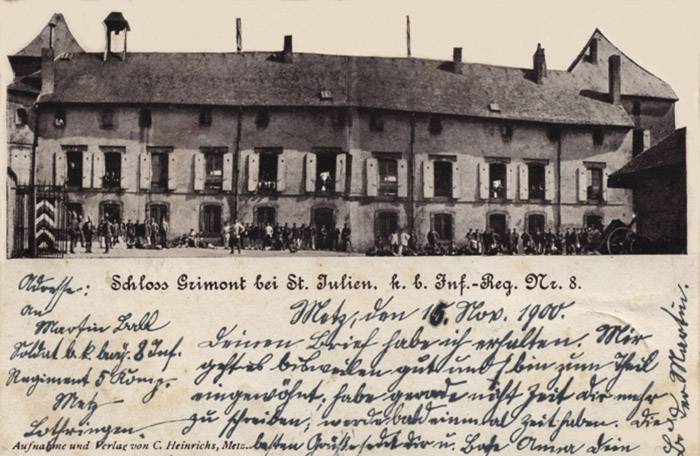 Schloss Grimont bei St. Julien. k. b. Inf.-Reg. Nr. 8.
Adresse:
an
Martin Ball
Soldat b. k. bayr. 8 Inf.
Regiment 5 Komp.
Metz
Lothringen.
Metz, den 15. Nov. 1900.
Deinen Brief habe ich erhalten. Mir
geht es bisweilen gut und bin zum Theil
eingewöhnt, habe gerade nicht Zeit dir mehr
zu schreiben, werde bald einmal Zeit haben. Die
besten Grüße sendet dir u. Anna Dein
Martin.
Aufnahme und Verlag von C. Heinrichs, Metz.